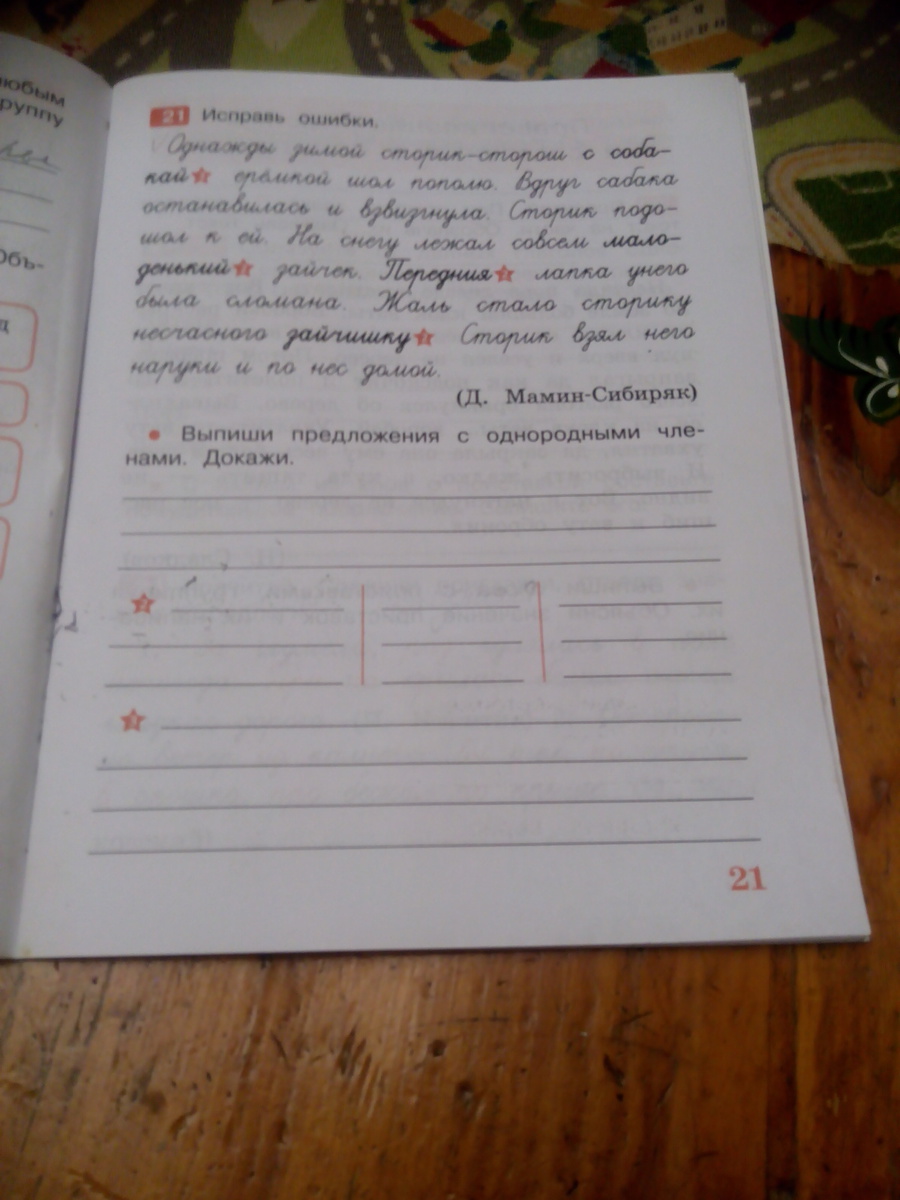 любым
руппу
21 Исправь ошибки.
Однажды зимой сторик-сторош с соба-
кай ерёмкой шол пополю. Вдруг сабака
останавилась и взвизгнула. Сторик подо-
шол к ей. На снегу лежал совсем мало-
денький зайчек. Передния лапка унего
была сломана. Жаль стало сторику
несчасного зайчишку Сторик взял него
наруки и по нес домой.
(Д. Мамин-Сибиряк)
• Выпиши предложения с однородными чле-
нами. Докажи.
Объ-
21